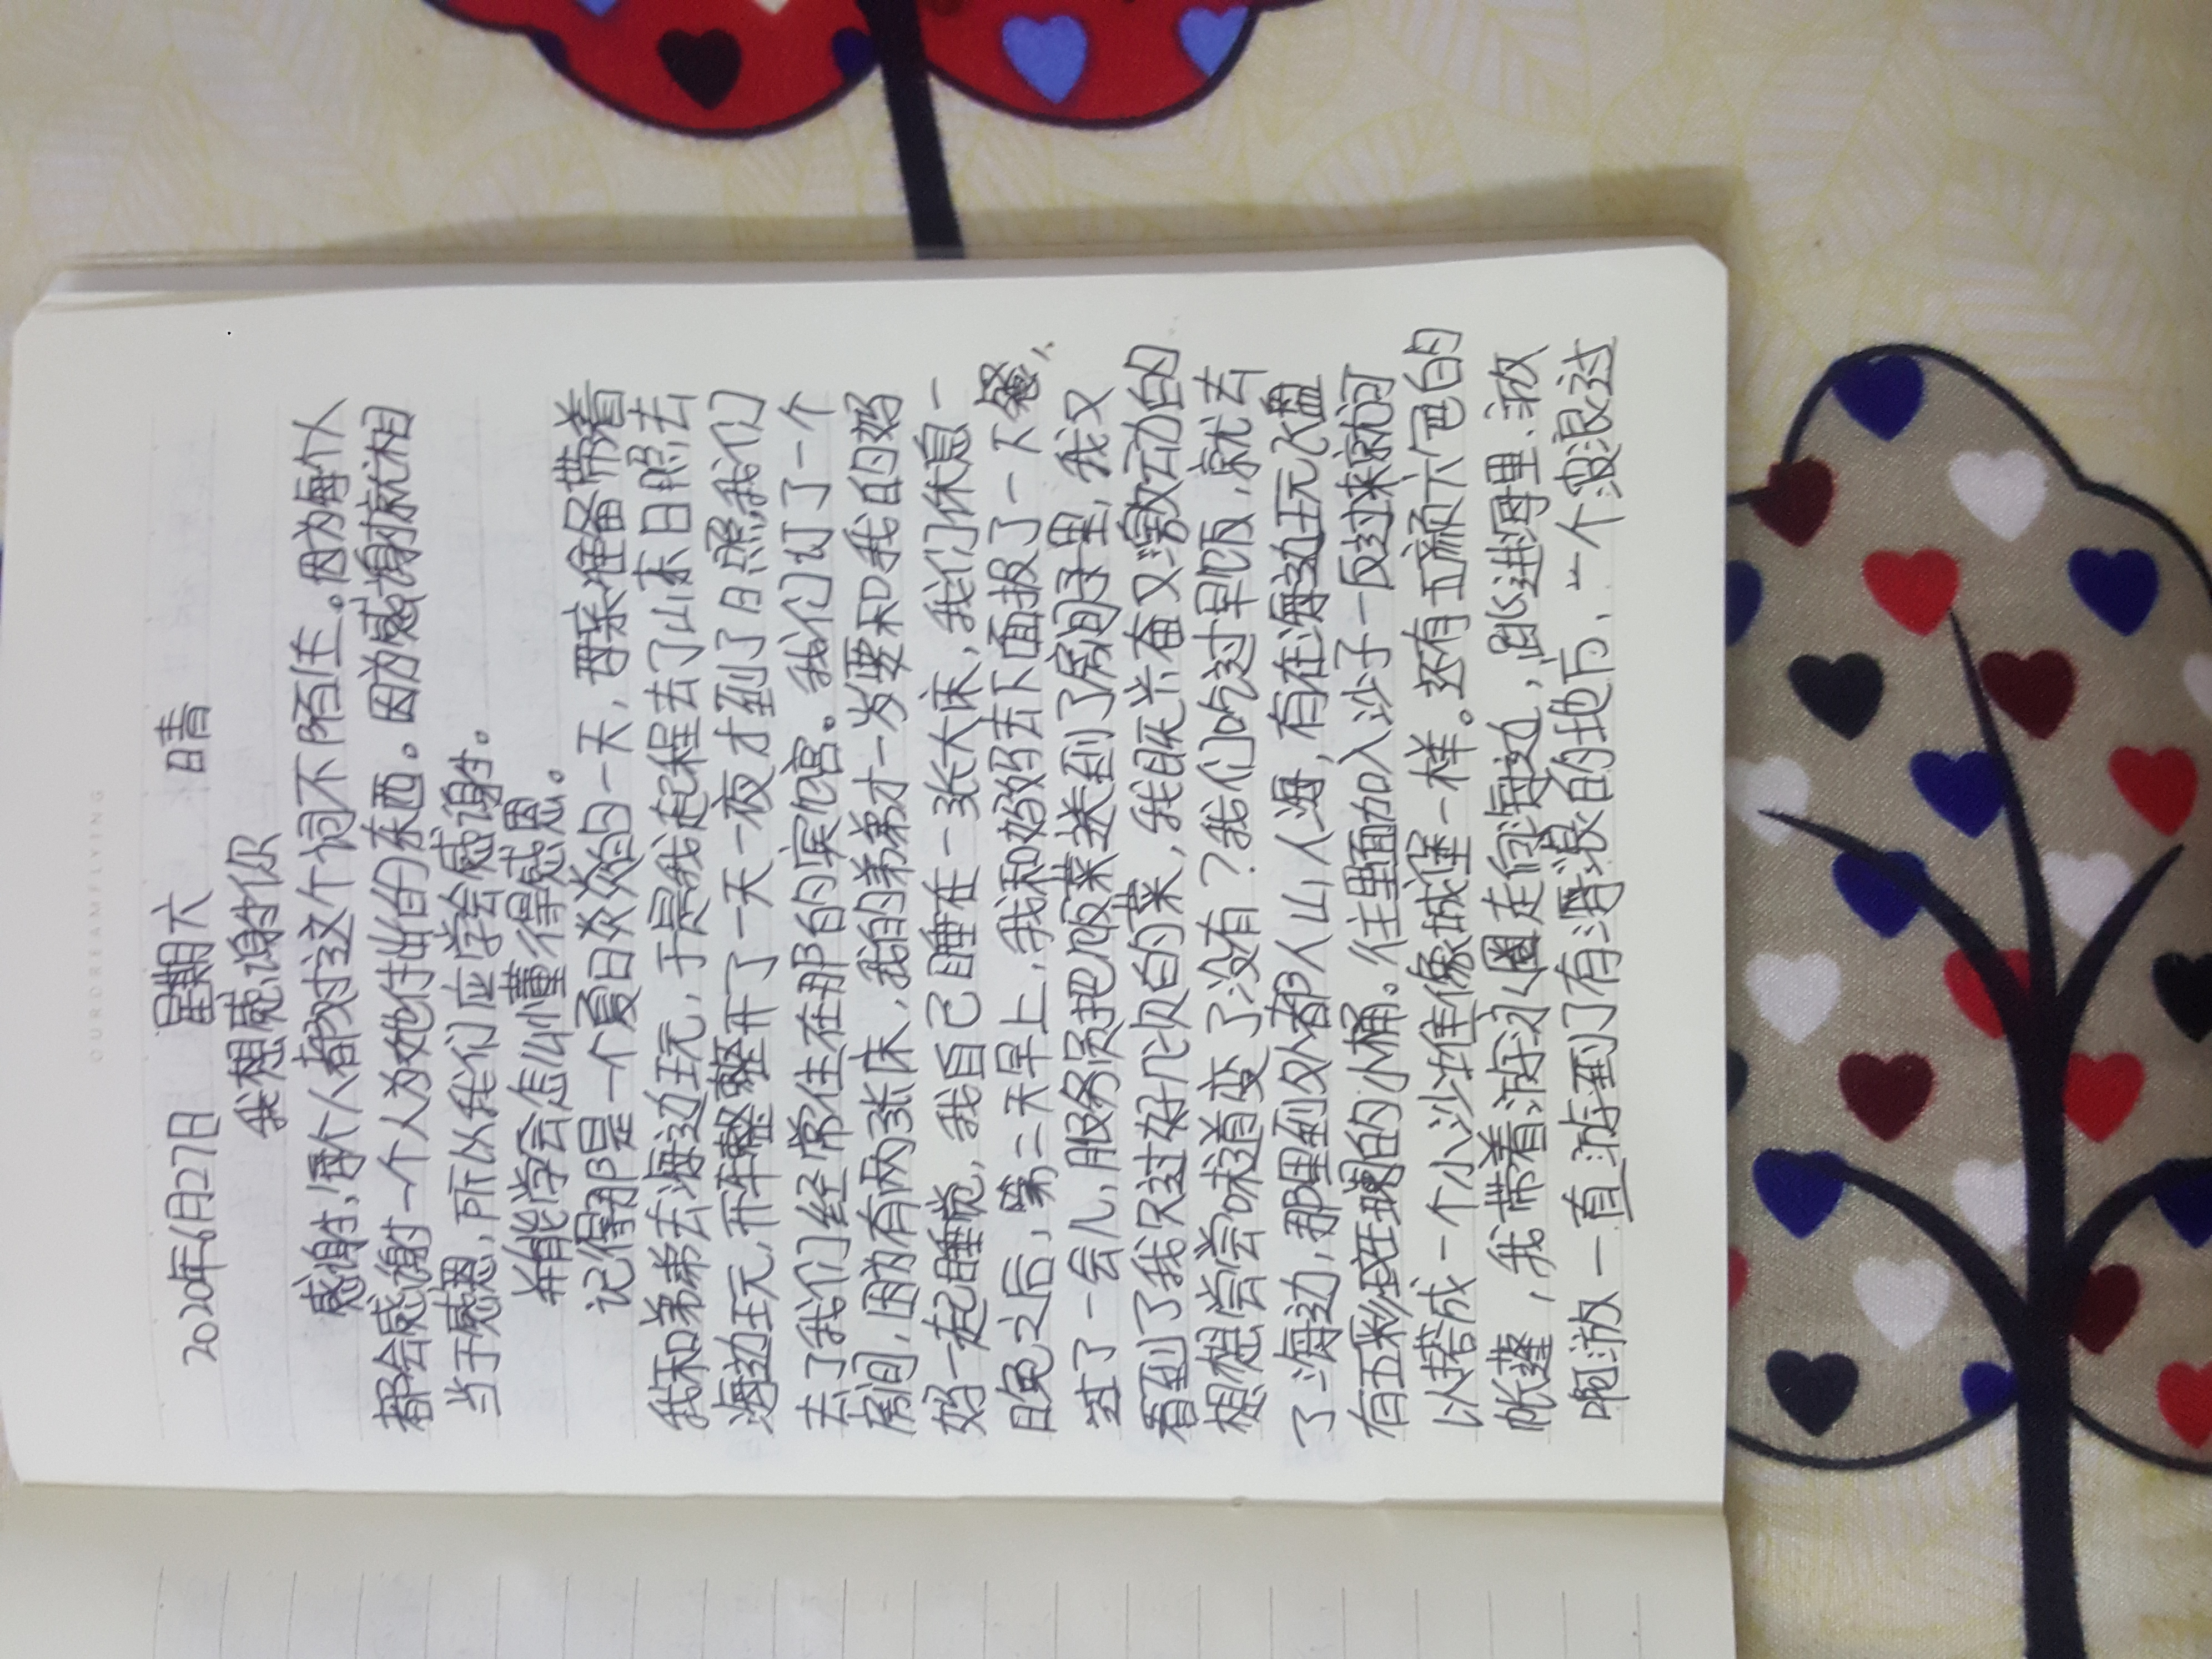 OURDREAMFLYING
2020年6月27日 星期六 晴
我想感谢你
感谢,每个人都对这个词不陌生。因为每个人
都会感谢一个人为她付出的东西。因为感谢就相
当于感恩,所以我们应学会感谢。
并能学会怎么懂得感恩。
记得那是一个夏日炎炎的一天,西亲准备带着
我和弟弟去海边玩,于是我起程去了山东日照去
海边玩,开车整整开了一天一夜才到了日照我们
去了我们经常住在那的宾馆。我们订了一个
房间,因为有两张床,我的弟弟才一岁要和我的妈
妈一起睡觉,我自己睡在一张大床,我们休息一
晚之后,第二天早上,我和妈妈去下面报了一下餐,
过了一会儿,服务员把饭菜送到了房间里,我又
看到了我只过好几次的菜,我既兴奋又激动的
想想尝尝味道变了没有?我们吃过早饭,就去
了海边,那里到处都人山人海,有在海边玩飞盘
有五彩斑斓的小桶。往里面加入沙子一反过来就可
以搭成一个小沙堆像城堡一样。还有五颜六色的
帐蓬,我带着游泳圈走向海边,跑进海里,游
啊游一直游到了有海浪的地方,一个波浪过